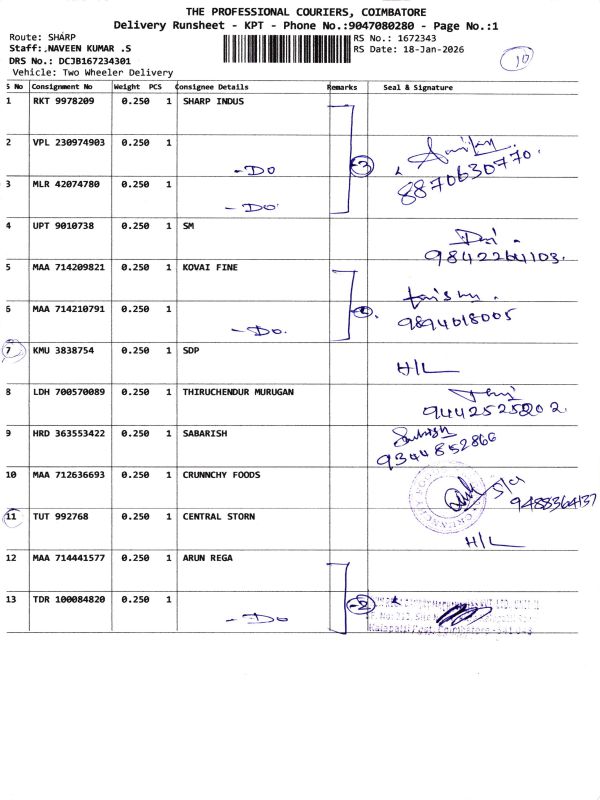 THE PROFESSIONAL COURIERS, COIMBATORE
Delivery Runsheet - KPT - Phone No.:9047080280 - Page No.:1
Route: SHARP
RS No.: 1672343
Staff: NAVEEN KUMAR .S
RS Date: 18-Jan-2026
DRS No.: DCJB167234301
10
Vehicle: Two Wheeler Delivery
S No Consignment No Weight PCS Consignee Details Remarks Seal & Signature
1 RKT 9978209 0.250 1 SHARP INDUS
2 VPL 230974903 0.250 1 -DO 3
8870630770.
3 MLR 42074780 0.250 1 -DO
4 UPT 9010738 0.250 1 SM
9842264103.
5 MAA 714209821 0.250 1 KOVAI FINE
6 MAA 714210791 0.250 1 -DO.
9894018005
7 KMU 3838754 0.250 1 SDP H/L
8 LDH 700570089 0.250 1 THIRUCHENDUR MURUGAN
9442525202.
9 HRD 363553422 0.250 1 SABARISH Sabarish
9344852866
10 MAA 712636693 0.250 1 CRUNNCHY FOODS
9488364137
11 TUT 992768 0.250 1 CENTRAL STORN H/L
12 MAA 714441577 0.250 1 ARUN REGA
13 TDR 100084820 0.250 1 -DO 2